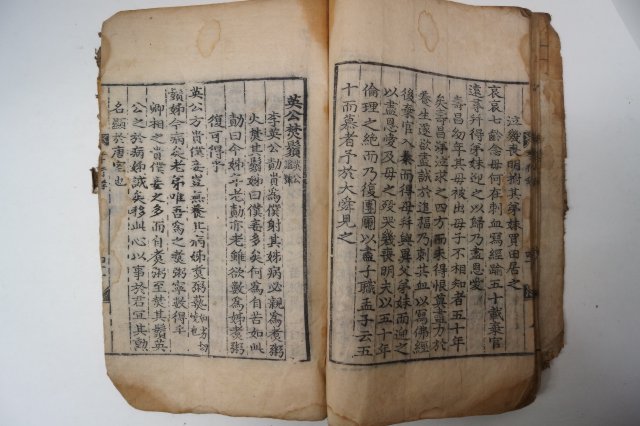 泣幾喪明拊其弟妹買田居之
哀哀七齡念母何在刺血寫經踰五十載棄官
遠尋幷得弟妹迎之以歸乃盡恩愛
壽昌幼年其母被出母子不相知者五十年
矣壽昌泣求之四方而未得恨莫盡力於
養生遂欲盡誠於追福乃刺其血以寫佛經
後棄官入秦而得母幷與異父弟妹而迎之
以盡恩愛及母之歿哭幾喪明夫以五十年
倫理之絶而乃復團圞以盡子職孟子云五
十而慕者予於大舜見之
英公焚鬚
李英公勣貴爲僕射其姊病必親爲煮粥
火焚其鬚姊曰僕妾多矣何爲自苦如此
勣曰今姊年老勣亦老雖欲數爲姊煮粥
復可得乎
英公方貴僕妾豈無養此病姊煮粥爇
鬚姊今病矣老弟唯吾爲之煮粥寧數得乎
卿相之貴僕妾之多而自煮粥至焚其鬚英
公之於病姊誠矣移此心以事於君宜其勳
名顯於唐室也